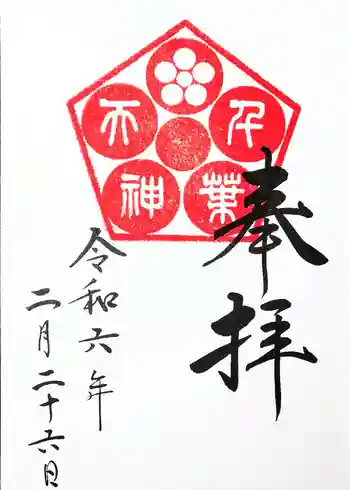 奉拝
千葉
天神
令和六年
二月二十六日